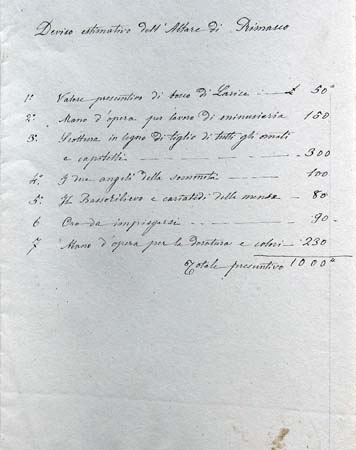 Deviso estimativo dell'Altare di Rimasco
1° Valore presuntivo di bosco di Larice £ 50"
2° Mano d'opera per lavoro di minusieria 150
3° Scottura in legno di tiglio di tutti gli ornati
e capitelli 300
4° I due angeli della sommità 100
5° Il Bassorilievo e cariatidi della mensa 80
6 Oro da impiegarsi 90
7 Mano d'opera per la doratura e colori 230
Totale presuntivo 1000"